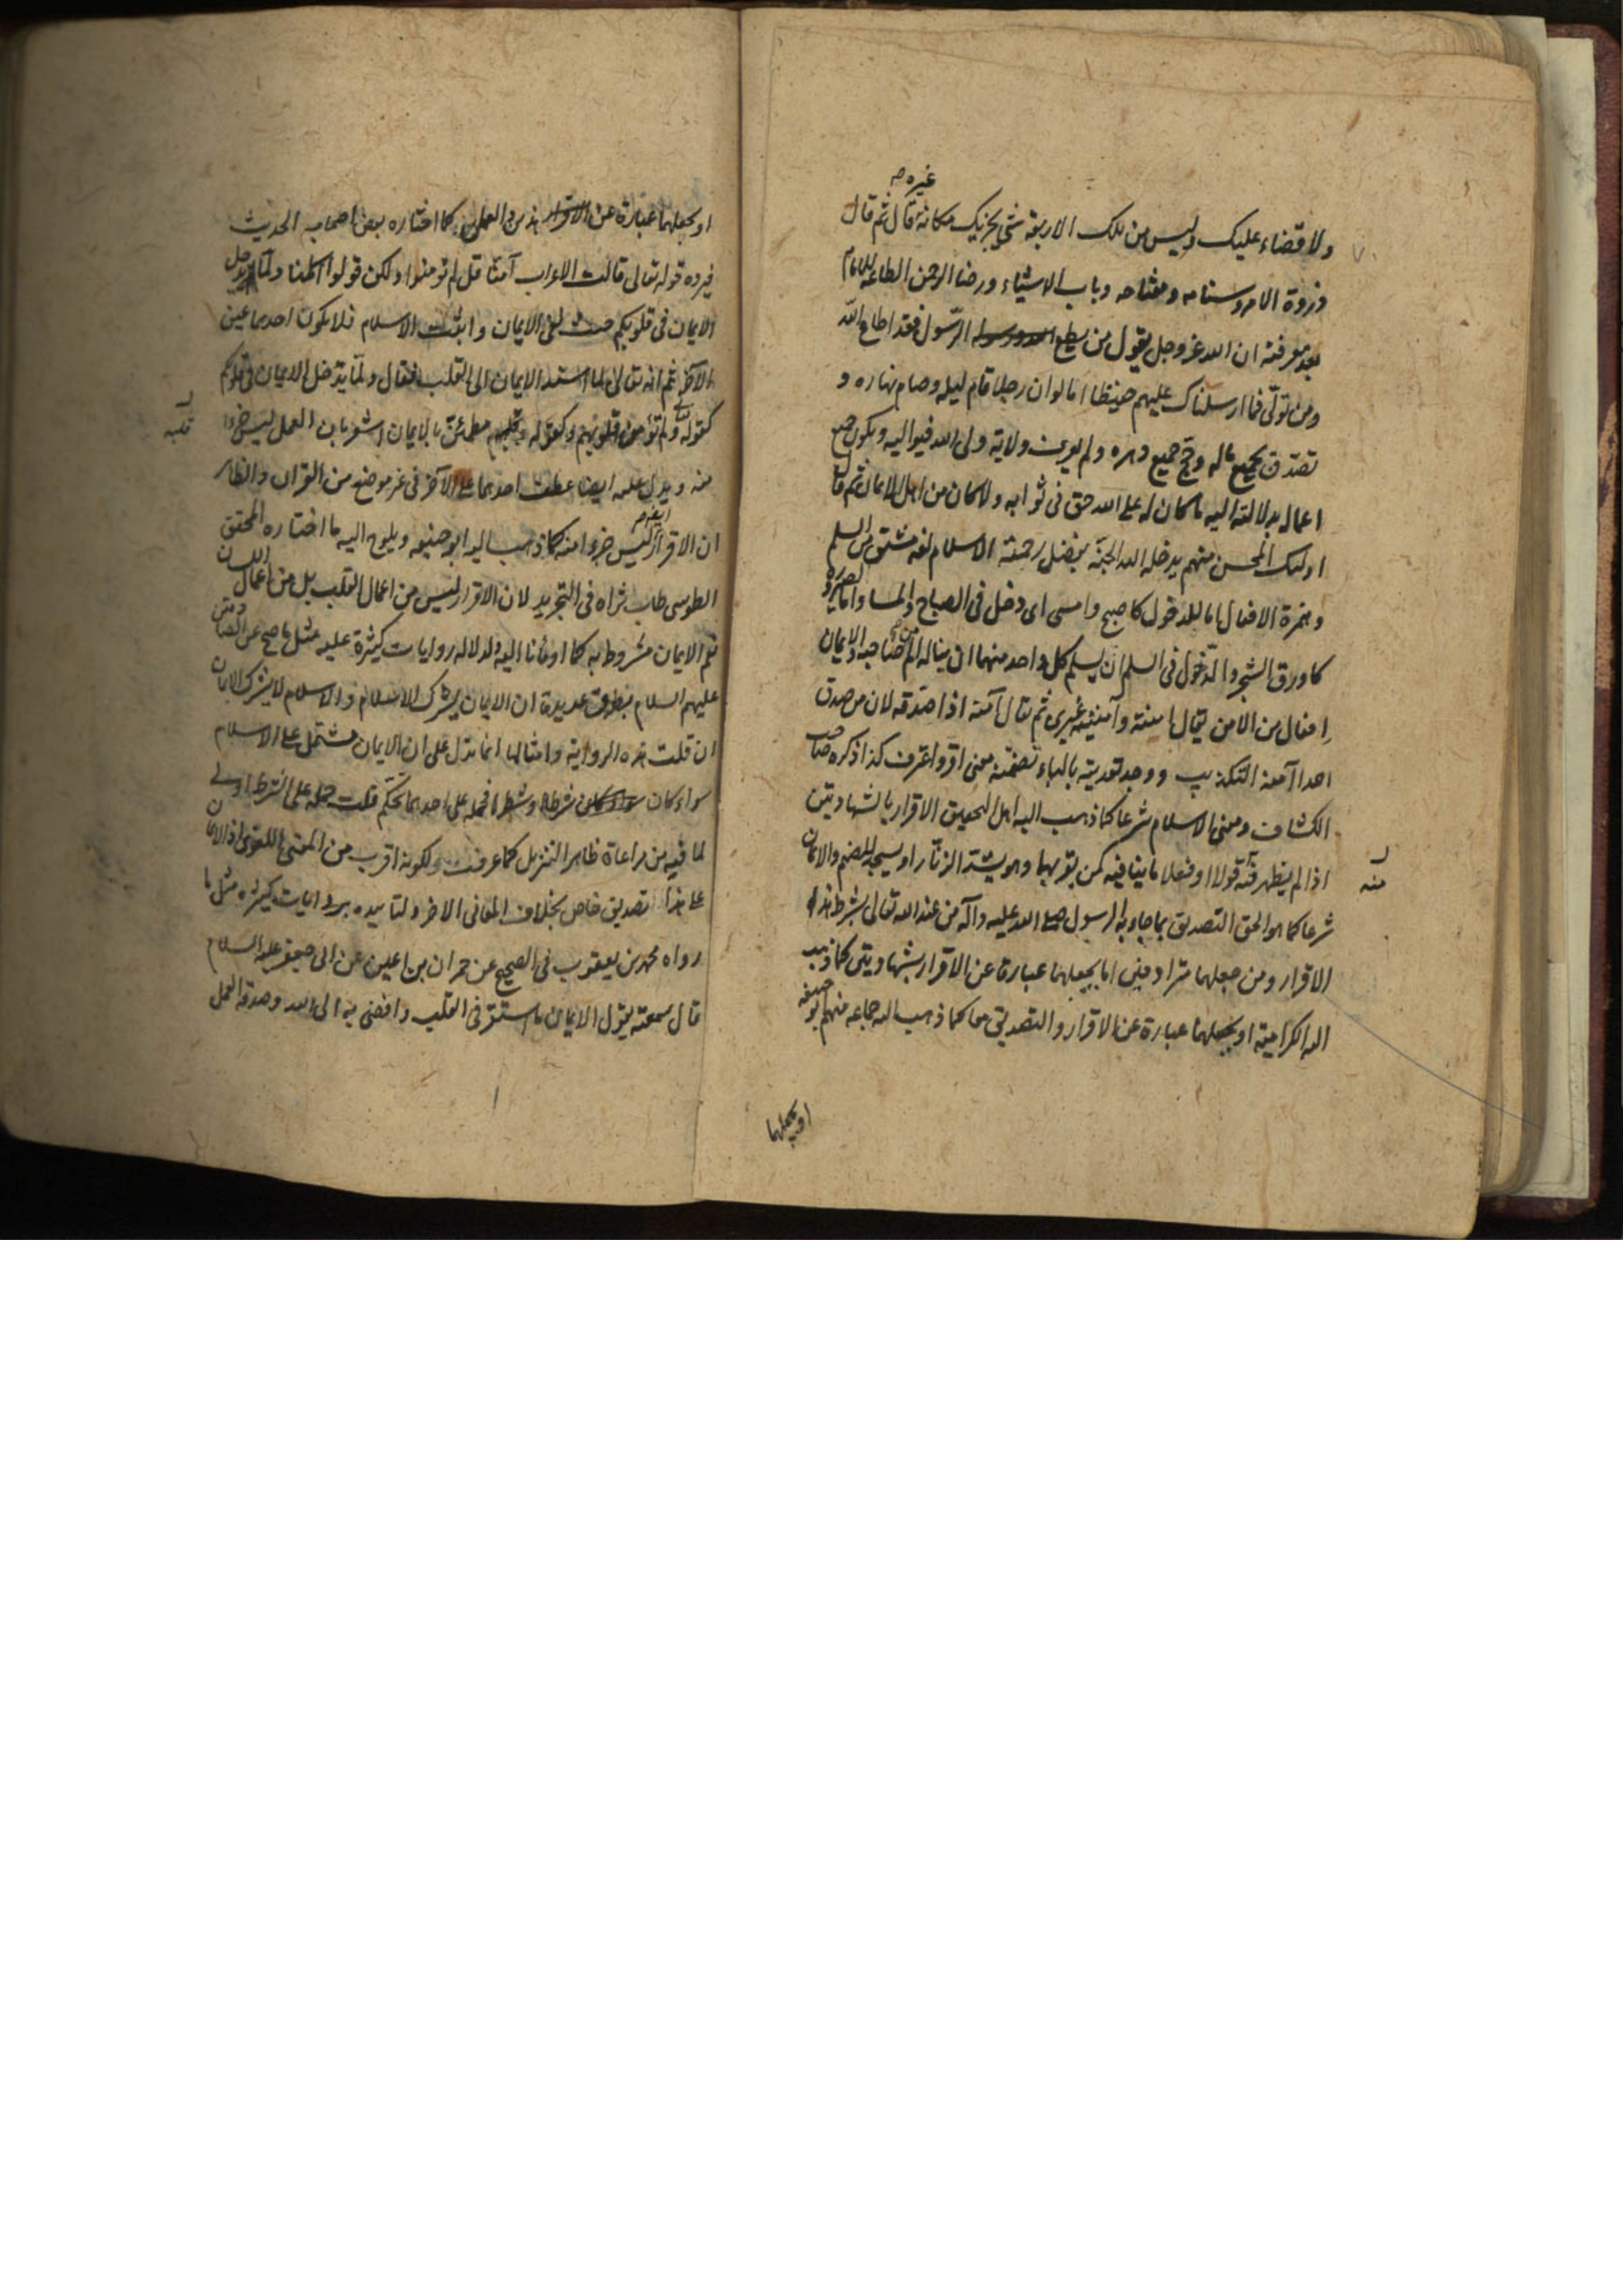 غيره ص
ولا قضاء عليك وليس من تلك الاربعة شئ يجزيك مكانه قال ثم قال
ذروة الامر وسنامه ومفتاحه وباب الاشياء ورضا الرحمن الطاعة للامام
بعد معرفته ان الله عز وجل يقول من يطع الرسول فقد اطاع الله
ومن تولى فما ارسلناك عليهم حفيظا اما لو ان رجلا قام ليله وصام نهاره و
تصدق بجميع ماله وحج جميع دهره ولم يعرف ولاية ولى الله فيواليه ويكون جميع
اعماله بدلالته اليه ما كان له على الله حق فى ثوابه ولا كان من اهل الايمان ثم قال
اولئك المحسن منهم يدخله الله الجنة بفضل رحمته الاسلام لغة مشتق من السلم
وهمزة الافعال اما للدخول كاصبح وامسى اى دخل فى الصباح والمسا واما للصيرورة
كاورق الشجر والدخول فى السلم ان يسلم كل واحد منهما ان يناله الم من صاحبه والايمان
افعال من الامن يقال امنته وآمنيه غيرى ثم يقال آمنه اذا صدقه لان من صدق
احدا آمنه التكذيب ووجه تعديته بالباء تضمنه معنى اقر واعترف كذا ذكره صاحب
الكشاف ومعنى الاسلام شرعا كما ذهب اليه اهل التحقيق الاقرار بالشهادتين
اذا لم يظهر قولا او فعلا ما ينافيه كمن يقر بهما وهو يشد الزنار او يسجد للصنم والايمان
منه
شرعا كما هو الحق التصديق بما جاء به الرسول صلى الله عليه وآله من عند الله تعالى بشرط هذا
الاقرار ومن جعلهما مترادفين اما يجعلهما عبارة عن الاقرار بشهادتين كما ذهب
اليه الكرامية او يجعلهما عبارة عن الاقرار والتصديق معا كما ذهب اليه جماعه منهم ابو حنيفه
او يجعلهما
او يجعلهما عبارة عن الاقرار هذين والعمل كما اختاره بعض اصحاب الحديث
فيرده قوله تعالى قالت الاعراب آمنا قل لم تؤمنوا ولكن قولوا اسلمنا ولما يدخل
الايمان فى قلوبكم حيث نفى الايمان واثبت الاسلام فلا يكون احدهما عين
الآخر ثم انه تعالى لما اسند الايمان الى القلب فقال ولما يدخل الايمان فى قلوبكم
كقوله ولم تؤمن قلوبهم وكقوله وقلبه مطمئن بالايمان اشعر بان العمل ليس جزوا
قلبه
منه ويدل عليه ايضا عطف احدهما على الآخر فى غير موضع من القران والظاهر
ان الاقرار ايضا ليس جزوا منه كما ذهب اليه ابو حنيفه ويلوح اليه ما اختاره المحقق
الطوسى طاب ثراه فى التجريد لان الاقرار ليس من اعمال القلب بل من اعمال اللسان
نعم الايمان مشروط به كما اومأنا اليه ولدلالة روايات كثيرة عليه مثل ما صح عن الصادقين
عليهم السلام بطرق عديدة ان الايمان يشرك الاسلام والاسلام لا يشرك الايمان
ان قلت هذه الرواية وامثالها انما تدل على ان الايمان مشتمل على الاسلام
سواء كان شرطا او شطرا فحمله على احدهما تحكم قلت حمله على الشرط اولى
لما فيه من مراعاة ظاهر التنزيل كما عرفت ولكونه اقرب من المعنى اللغوى اذ الايمان
على هذا تصديق خاص بخلاف المعانى الاخر ولتاييده بروايات كثيره مثل ما
رواه محمد بن يعقوب فى الصحيح عن حمران بن اعين عن ابى جعفر عليه السلام
قال سمعته يقول الايمان ما استقر فى القلب وافضى به الى الله وصدقه العمل